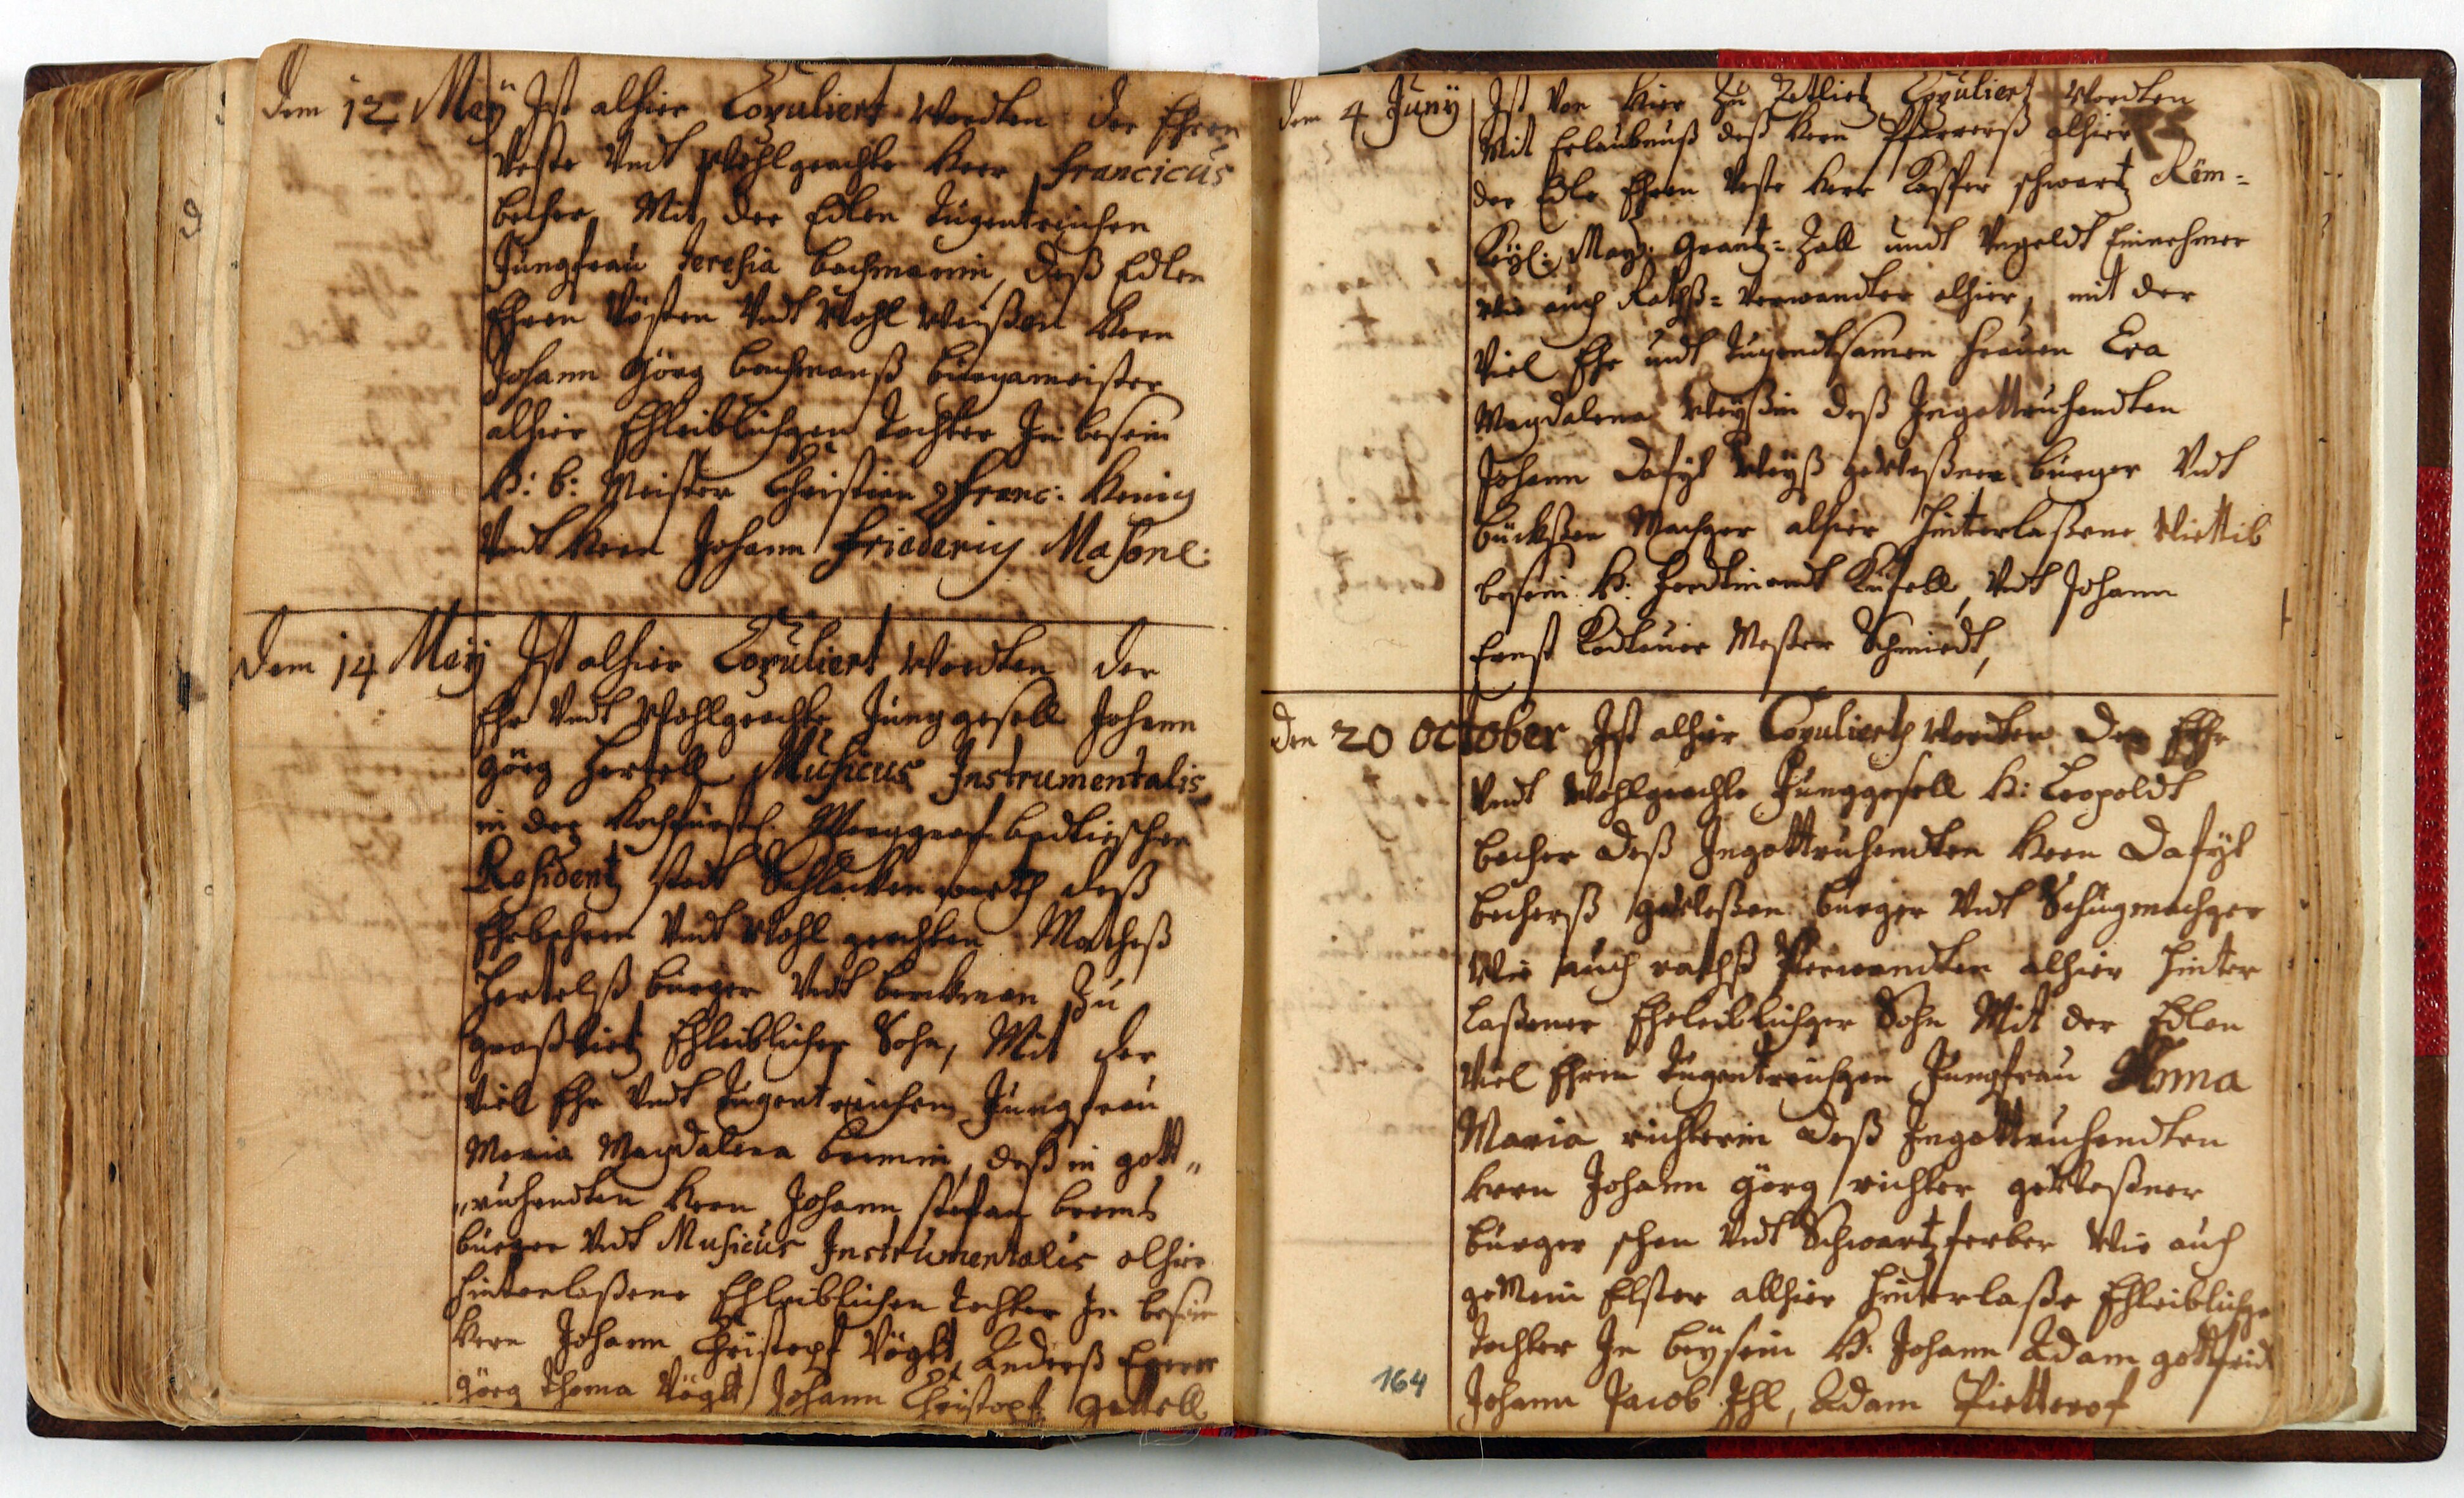 Dem 12 Meÿ Ist alhier Copuliert Wordten der Ehrn
Veste Undt Wohlgeachte Herr Francicus
Becher, Mit der Edlen Tugentreichen
Jungfrau Teresia Bachmanin, deß Edlen
Ehrn Vösten Undt Wohl Weißen Herrn
Johann Görg Bachmanß Burgameister
alhier Ehleiblichgen Tochter In besein
H: B: Meister Christian Franc: König
Undt Herrn Johann Friederich
Dem 14 Meÿ Ist alhier Copuliert Wordten der
Ehr Undt Wohlgeachte Junggesell Johann
Görg Hertell Musicus Instrumentalis
in der Hochfürstl. Marggraf badtischen
Residentz stadt Schlackenwerth deß
Undt Wohl geachten Matheß
Hertelß burger Undt berckman Zu
Ehleiblicher Sohn, Mit der
Viel Ehr Undt Tugentreichen Jungfrau
Maria Magdalena deß in gott„
„ruhendten Herrn Johann
burger Undt Musicus Instrumentalis alhier
hinterlaßene Ehleiblichen Tochter In besein
Herrn Johann Christopf Vögtl, Anderß
Görg Thoma Vögtl, Johann Christopf
Dem 4 Junÿ Ist Von hier Zu Zetlietz Copuliert Wordten
Mit Erlaubnuß deß Herrn Pfarrerß alhier
der Edle Ehrn Veste Herr Caspar schwartz Röm=
Kaÿl: Maÿ: Grantz=Zoll undt Ungeldt Einnehmer
wie auch Rathß=Verwandter alhier, mit der
Viel Ehr undt Tugendtsamen Frauen Eva
Magdalena Weÿßin deß Ingottruhendten
Johann Dafÿt Weÿß geweßner burger Undt
bücksen Machger alhier Hinterlaßene Wiettib
besein H: Ferdtinandt Undt Johann
Ernst Schmiedt,
Den 20 October Ist alhier Copulierth Wordten Der Ehr
Undt Wohlgeachte Junggesell H: Leopoldt
Becher deß Ingottruhendten Herrn Dafÿt
Becherß geweßen burger Undt
Wie auch rathß Verwandten alhier hinter
laßener Eheleiblichger Sohn Mit der Edlen
Viel Ehrn Tugentreichgen Jungfrau Anna
Maria richterin deß Ingottruhendten
Herrn Johann Görg richter geweßner
burger schen Undt Schwartzferber Wie auch
gemein Elster allhier hinterlaße Ehleiblichge
Tochter In beÿsein H: Johann Adam gottfridt
Johann Jacob Ihl, Adam
164